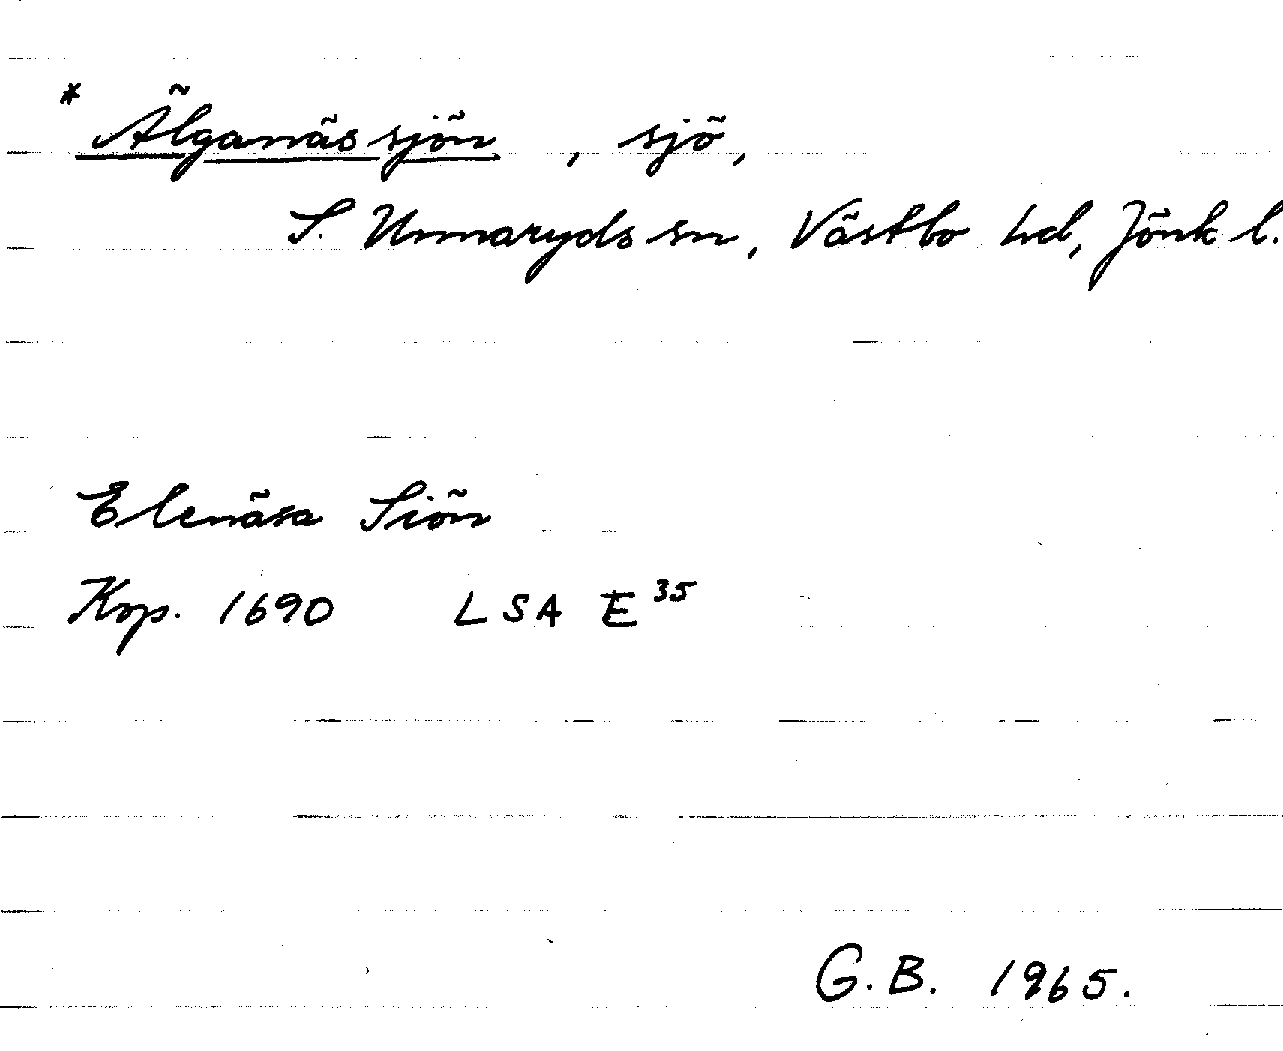 * Älganässjön, sjö,
S. Unnaryds sn, Västbo hd, Jönk l.
Elenäsa Siön
Kop. 1690 LSA E 35
G.B. 1965.